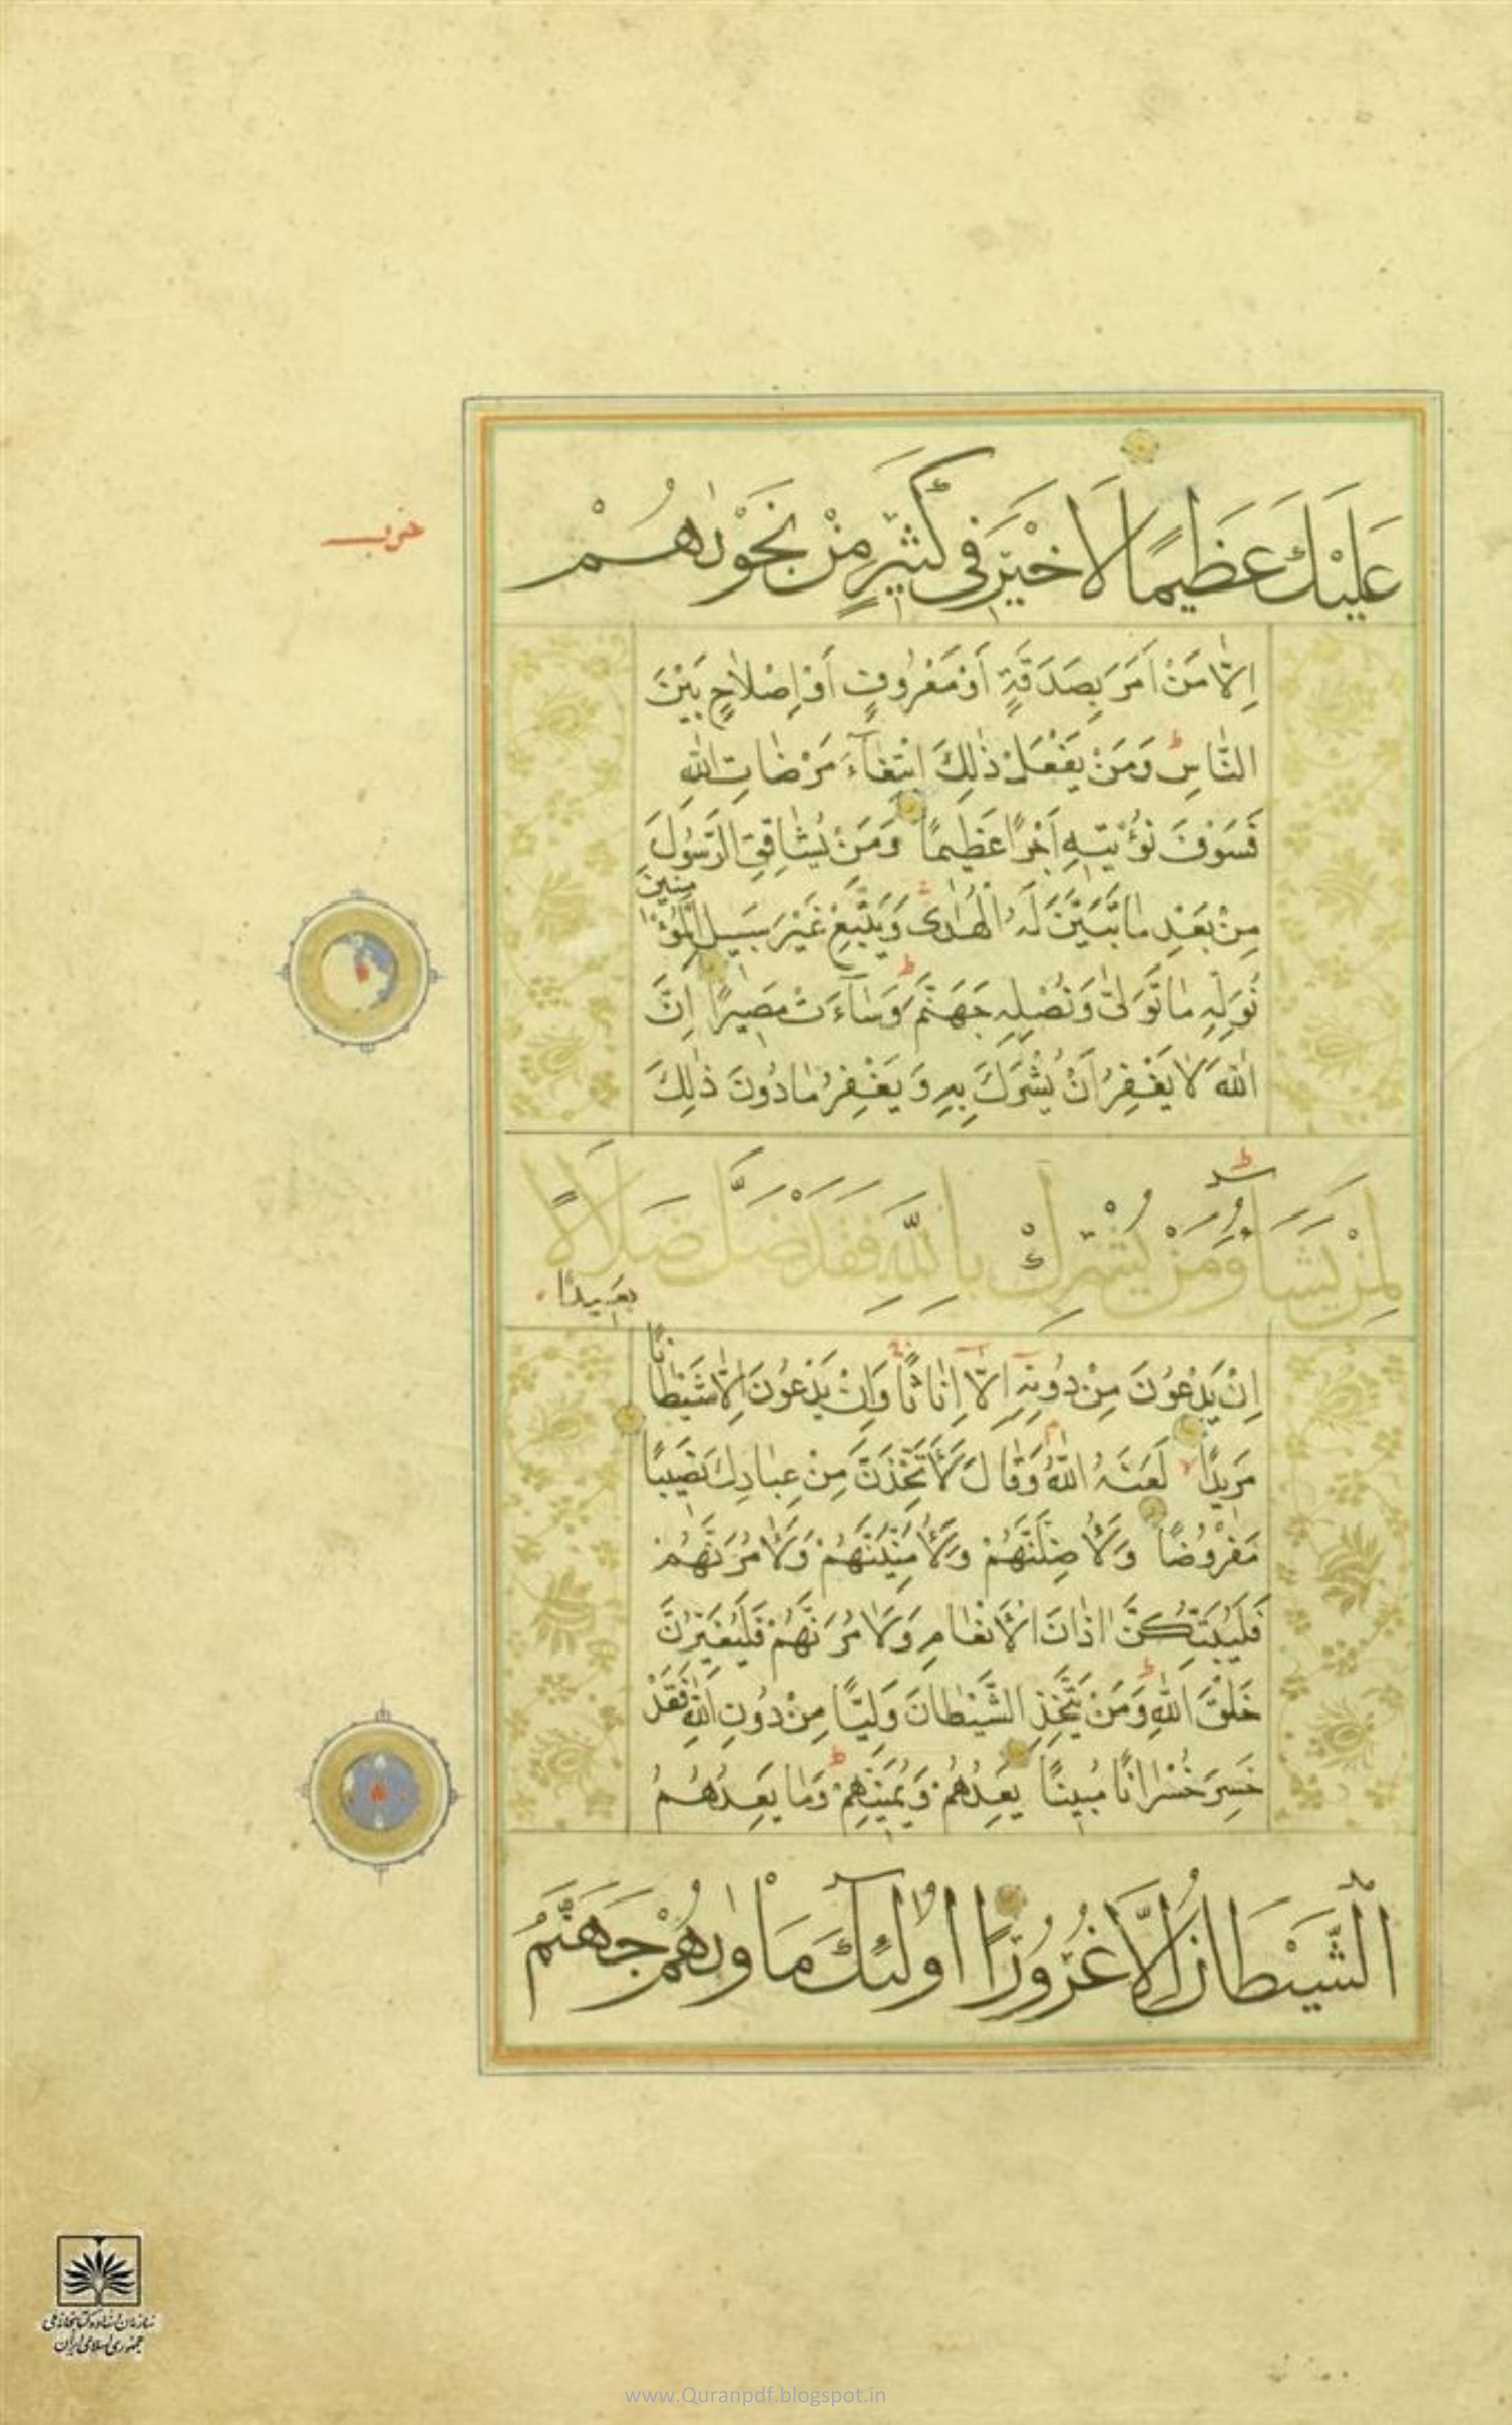 عَلَيْكَ عَظِيمًا لَا خَيْرَ فِي كَثِيرٍ مِنْ نَجْوٰىهُمْ
حزب
اِلَّا مَنْ اَمَرَ بِصَدَقَةٍ اَوْ مَعْرُوفٍ اَوْ اِصْلَاحٍ بَيْنَ
النَّاسِ ط وَمَنْ يَفْعَلْ ذٰلِكَ ابْتِغَآءَ مَرْضَاتِ اللهِ
فَسَوْفَ نُؤْتِيهِ اَجْرًا عَظِيمًا وَمَنْ يُشَاقِقِ الرَّسُولَ
مِنْ بَعْدِ مَا تَبَيَّنَ لَهُ الْهُدٰى وَيَتَّبِعْ غَيْرَ سَبِيلِ الْمُؤْمِنِينَ
نُوَلِّهِ مَا تَوَلّٰى وَنُصْلِهِ جَهَنَّمَ ط وَسَآءَتْ مَصِيرًا اِنَّ
اللهَ لَا يَغْفِرُ اَنْ يُشْرَكَ بِهِ وَيَغْفِرُ مَا دُونَ ذٰلِكَ
لِمَنْ يَشَآءُ ط وَمَنْ يُشْرِكْ بِاللهِ فَقَدْ ضَلَّ ضَلَالًا
بَعِيدًا
اِنْ يَدْعُونَ مِنْ دُونِهِ اِلَّا اِنَاثًا وَاِنْ يَدْعُونَ اِلَّا شَيْطَانًا
مَرِيدًا لَعَنَهُ اللهُ م وَقَالَ لَاَتَّخِذَنَّ مِنْ عِبَادِكَ نَصِيبًا
مَفْرُوضًا وَلَاُضِلَّنَّهُمْ وَلَاُمَنِّيَنَّهُمْ وَلَاٰمُرَنَّهُمْ
فَلَيُبَتِّكُنَّ اٰذَانَ الْاَنْعَامِ وَلَاٰمُرَنَّهُمْ فَلَيُغَيِّرُنَّ
خَلْقَ اللهِ ط وَمَنْ يَتَّخِذِ الشَّيْطَانَ وَلِيًّا مِنْ دُونِ اللهِ فَقَدْ
خَسِرَ خُسْرَانًا مُبِينًا يَعِدُهُمْ وَيُمَنِّيهِمْ ط وَمَا يَعِدُهُمُ
الشَّيْطَانُ اِلَّا غُرُورًا اُولٰٓئِكَ مَاْوٰىهُمْ جَهَنَّمُ
سازمان اسناد و کتابخانه ملی
جمهوری اسلامی ایران
www.Quranpdf.blogspot.in